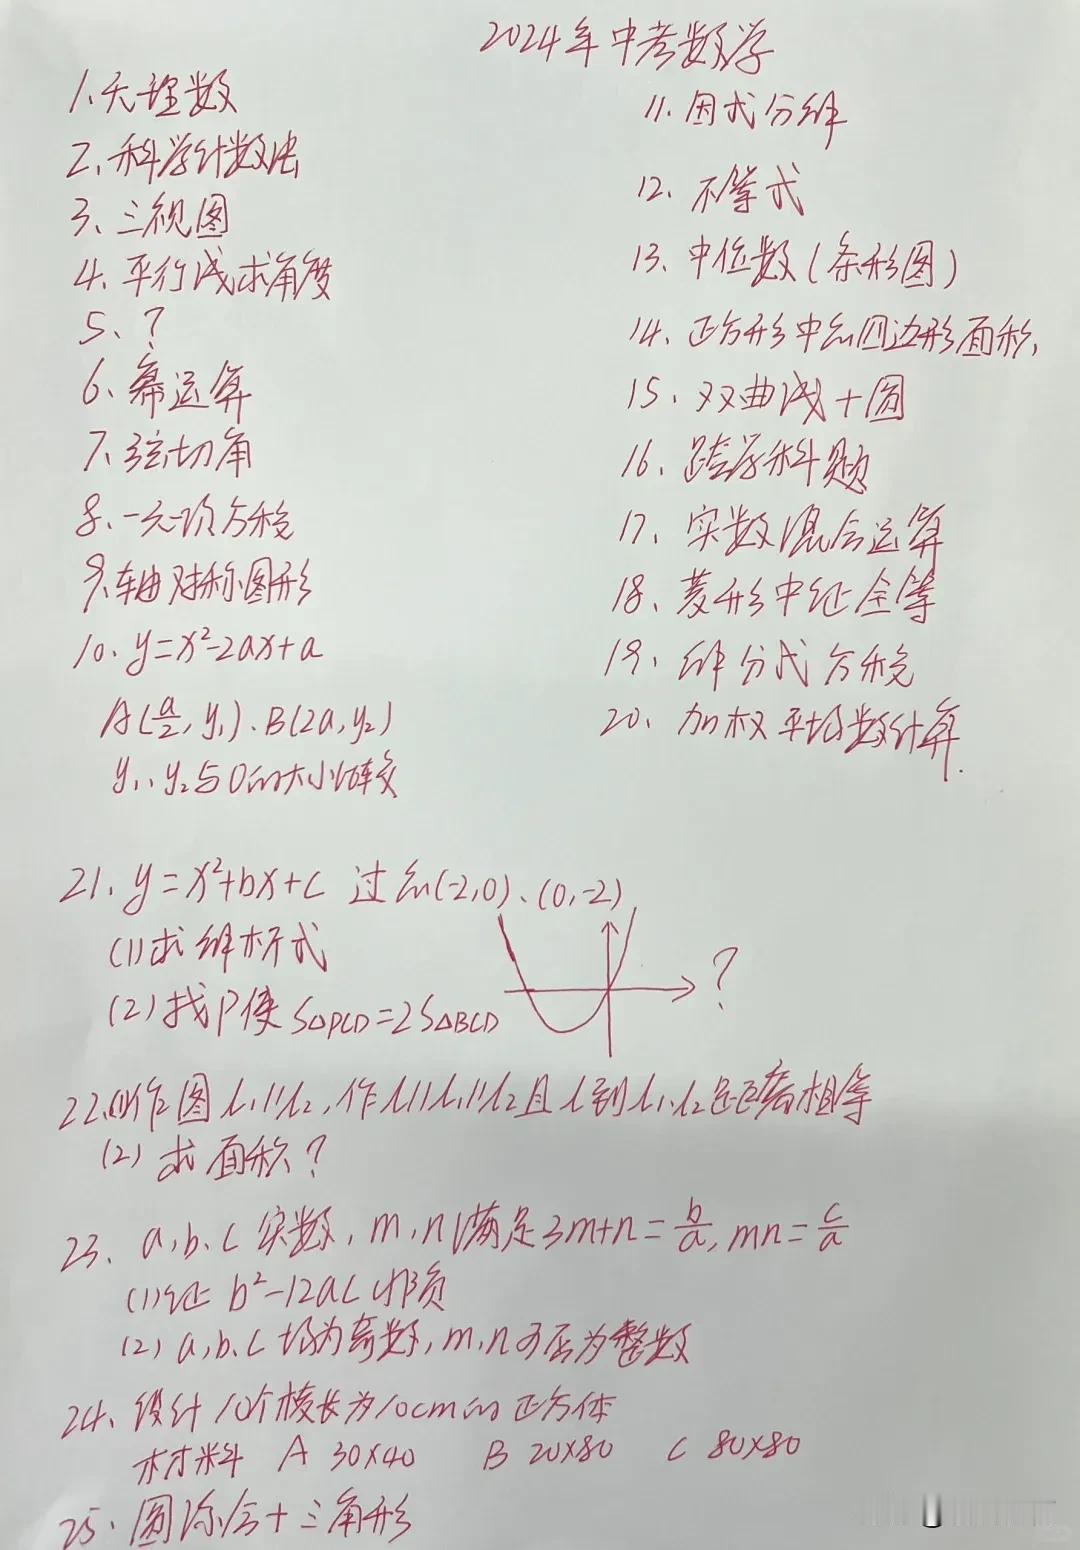 2024年中考数学
1、无理数
2、科学计数法
3、三视图
4、平行线求角度
5、?
6、幂运算
7、弦切角
8、一元一次方程
9、轴对称图形
10、y=x²-2ax+a
A(a/2, y₁)、B(2a, y₂)
y₁、y₂与0的大小比较
11、因式分解
12、不等式
13、中位数(条形图)
14、正方形中的四边形面积
15、双曲线+圆
16、跨学科题
17、实数混合运算
18、菱形中证全等
19、解分式方程
20、加权平均数计算.
21、y=x²+bx+c 过点(-2,0)、(0,-2)
(1)求解析式
(2)找P使S△PCD=2S△BCD
?
22、(1)作图 l₁∥l₂,作l∥l₁∥l₂且l到l₁、l₂距离相等
(2)求面积?
23、a、b、c实数,m、n满足3m+n=b/a, mn=c/a
(1)证 b²-12ac 非负
(2)a、b、c均为奇数,m、n可否为整数
24、设计10个棱长为10cm的正方体
材料 A 30×40 B 20×80 C 80×80
25、圆综合+三角形